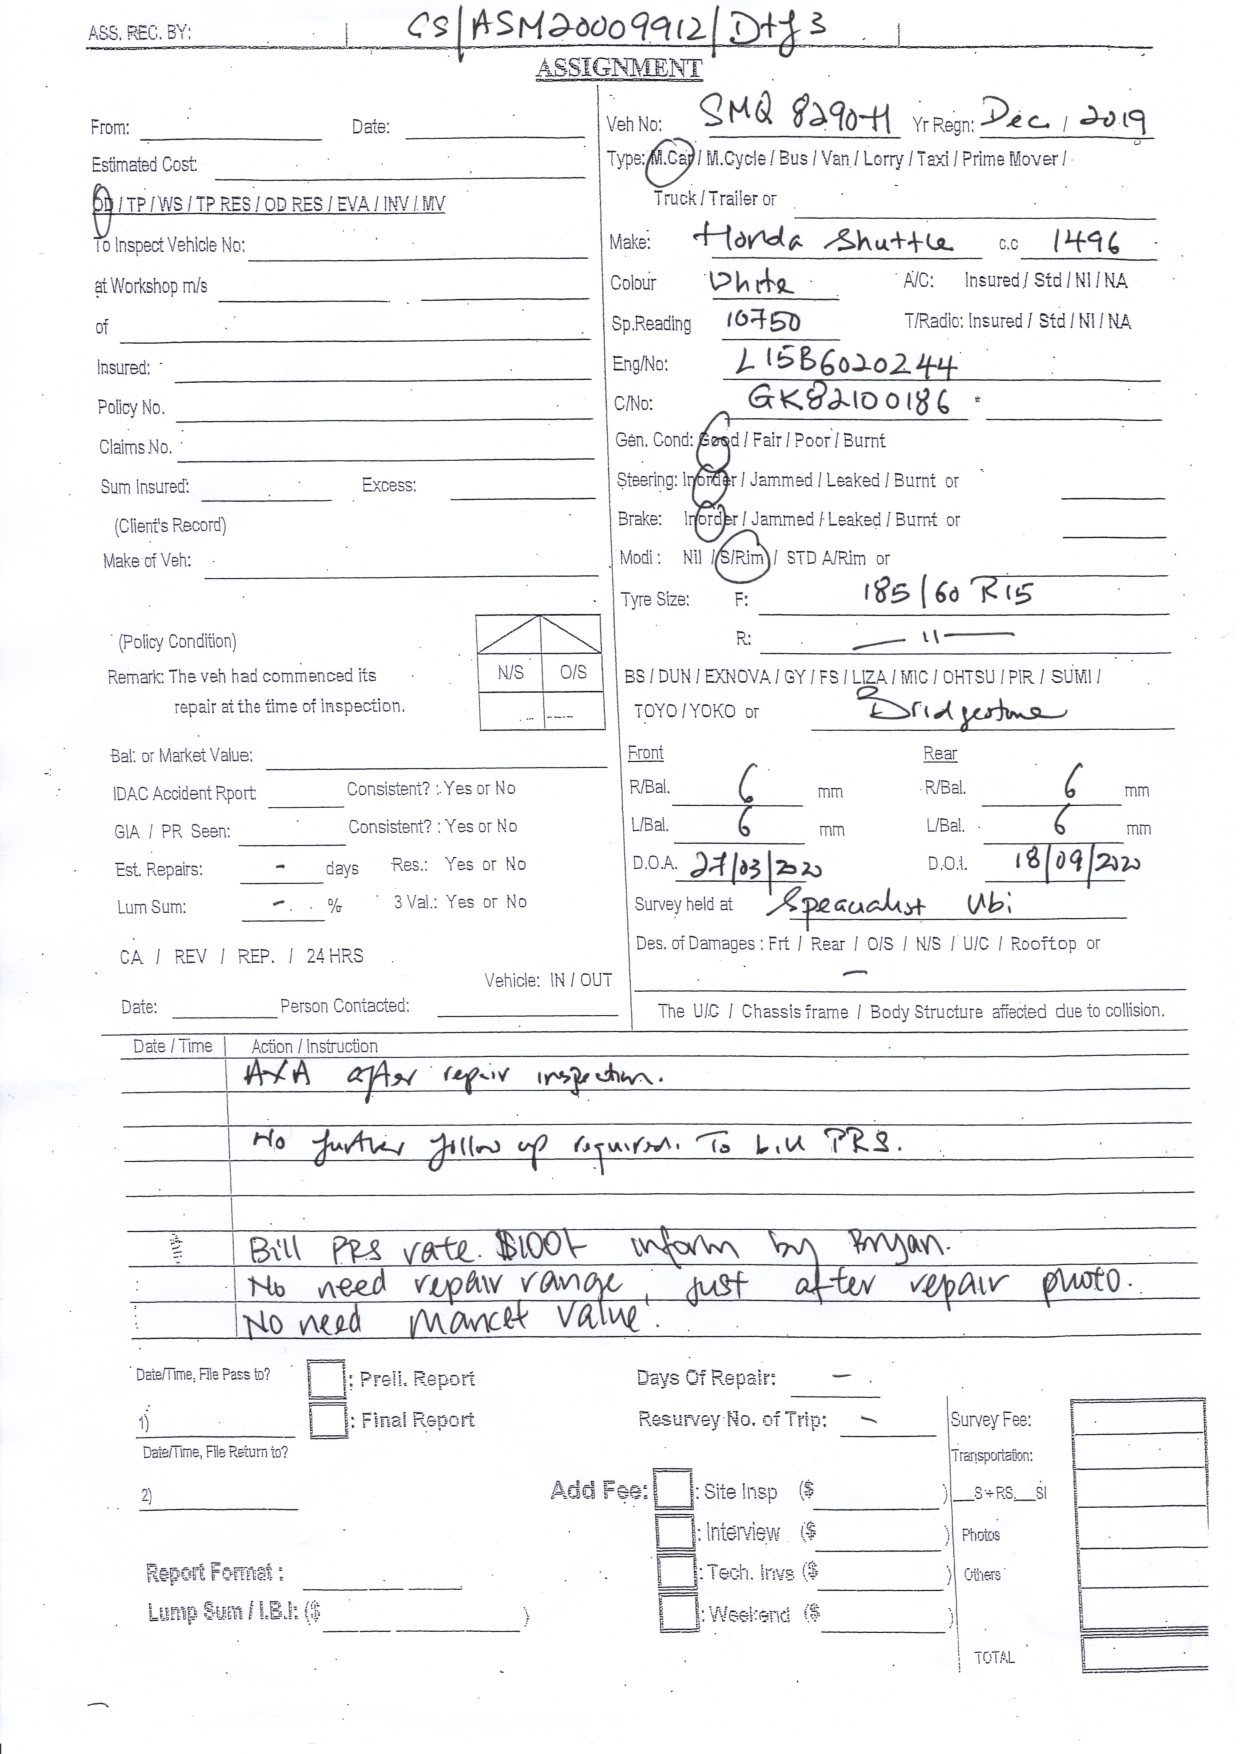 ASS. REC. BY: CS/ASM20009912/Dtf3
ASSIGNMENT
From: Date:
Estimated Cost:
OD / TP / WS / TP RES / OD RES / EVA / INV / MV
To Inspect Vehicle No:
at Workshop m/s
of
Insured:
Policy No.
Claims No.
Sum Insured: Excess:
(Client's Record)
Make of Veh:
(Policy Condition)
Remark: The veh had commenced its
repair at the time of inspection.
N/S O/S
Bal: or Market Value:
IDAC Accident Rport: Consistent? : Yes or No
GIA / PR Seen: Consistent? : Yes or No
Est. Repairs: - days Res.: Yes or No
Lum Sum: - % 3 Val.: Yes or No
CA / REV / REP. / 24 HRS
Vehicle: IN / OUT
Date: Person Contacted:
Veh No: SMQ 8290H Yr Regn: Dec / 2019
Type: M.Car / M.Cycle / Bus / Van / Lorry / Taxi / Prime Mover /
Truck / Trailer or
Make: Honda Shuttle c.c 1496
Colour White A/C: Insured / Std / NI / NA
Sp.Reading 10750 T/Radio: Insured / Std / NI / NA
Eng/No: L15B6020244
C/No: GK82100186 *
Gen. Cond: Good / Fair / Poor / Burnt
Steering: Inorder / Jammed / Leaked / Burnt or
Brake: Inorder / Jammed / Leaked / Burnt or
Modi : Nil / S/Rim / STD A/Rim or
Tyre Size: F: 185/60 R15
R: — 11 —
BS / DUN / EXNOVA / GY / FS / LIZA / MIC / OHTSU / PIR / SUMI /
TOYO / YOKO or Bridgestone
Front Rear
R/Bal. 6 mm R/Bal. 6 mm
L/Bal. 6 mm L/Bal. 6 mm
D.O.A. 27/03/2020 D.O.I. 18/09/2020
Survey held at Speacialist Ubi
Des. of Damages : Frt / Rear / O/S / N/S / U/C / Rooftop or
-
The U/C / Chassis frame / Body Structure affected due to collision.
Date / Time Action / Instruction
AXA after repair inspection.
No further follow up required. To bill PRS.
Bill PRS rate. $100/- inform by Bryan.
No need repair range, just after repair photo.
No need Marcet value.
Date/Time, File Pass to? : Prell. Report Days Of Repair: -
1) : Final Report Resurvey No. of Trip: - Survey Fee:
Date/Time, File Return to? Transportation:
2) Add Fee: : Site Insp ($ ) __S+RS__SI
: Interview ($ ) Photos
Report Format : : Tech. Invs ($ ) Others
Lump Sum / I.B.I: ($ ) : Weekend ($ )
TOTAL